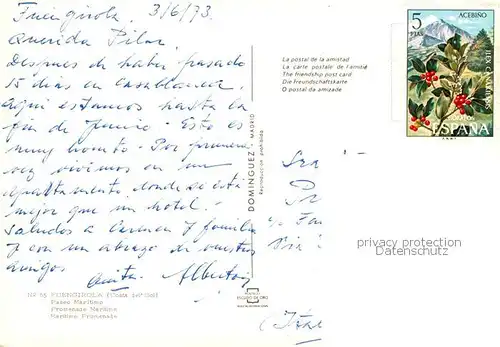 Fuengirola, 3/6/73.
Querida Pilar,
Despues de haber pasado
15 dias en Casablanca,
Aqui estamos hasta la
fin de Junio. Esto es
muy bonito. Por primera
vez vivimos en un
apartamento donde se está
mejor que un hotel.
Saludos a Carmen y familia
y con un abrazo de vuestros
amigos
Anita Alberto
FUENGIROLA (Costa del Sol)
Paseo Marítimo
Promenade Maritime
Maritime Promenade
DOMINGUEZ - MADRID
Reproducción prohibida
La postal de la amistad
La carte postale de l'amitié
The friendship post card
Die Freundschaftskarte
O postal da amizade
5
PTAS
ACEBIÑO
ESPAÑA
privacy protection
Datenschutz